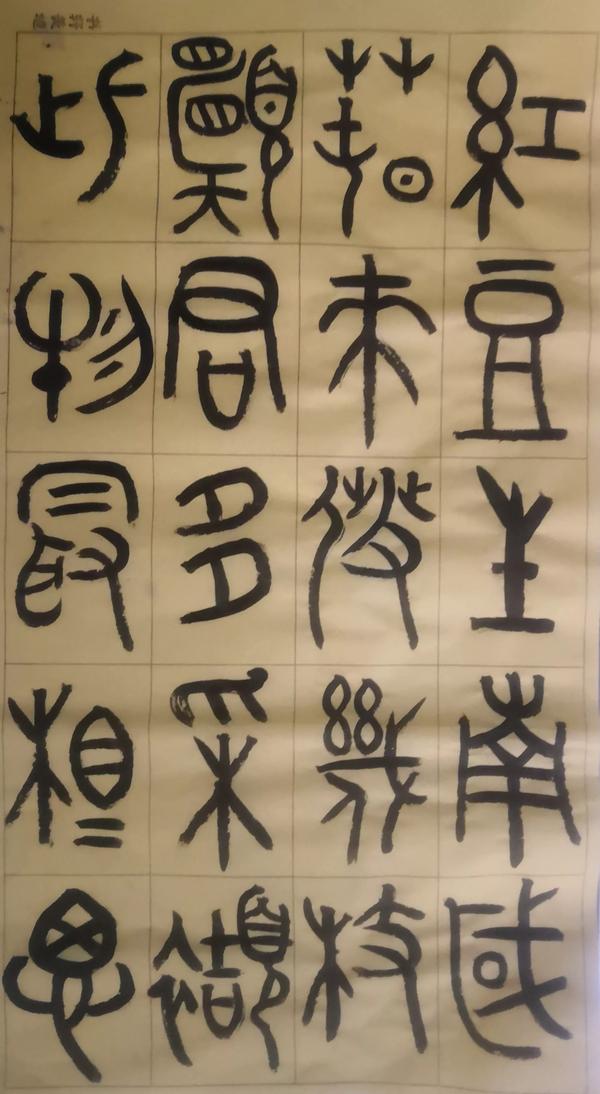 紅豆生南國
春來發幾枝
願君多采襭
此物最相思